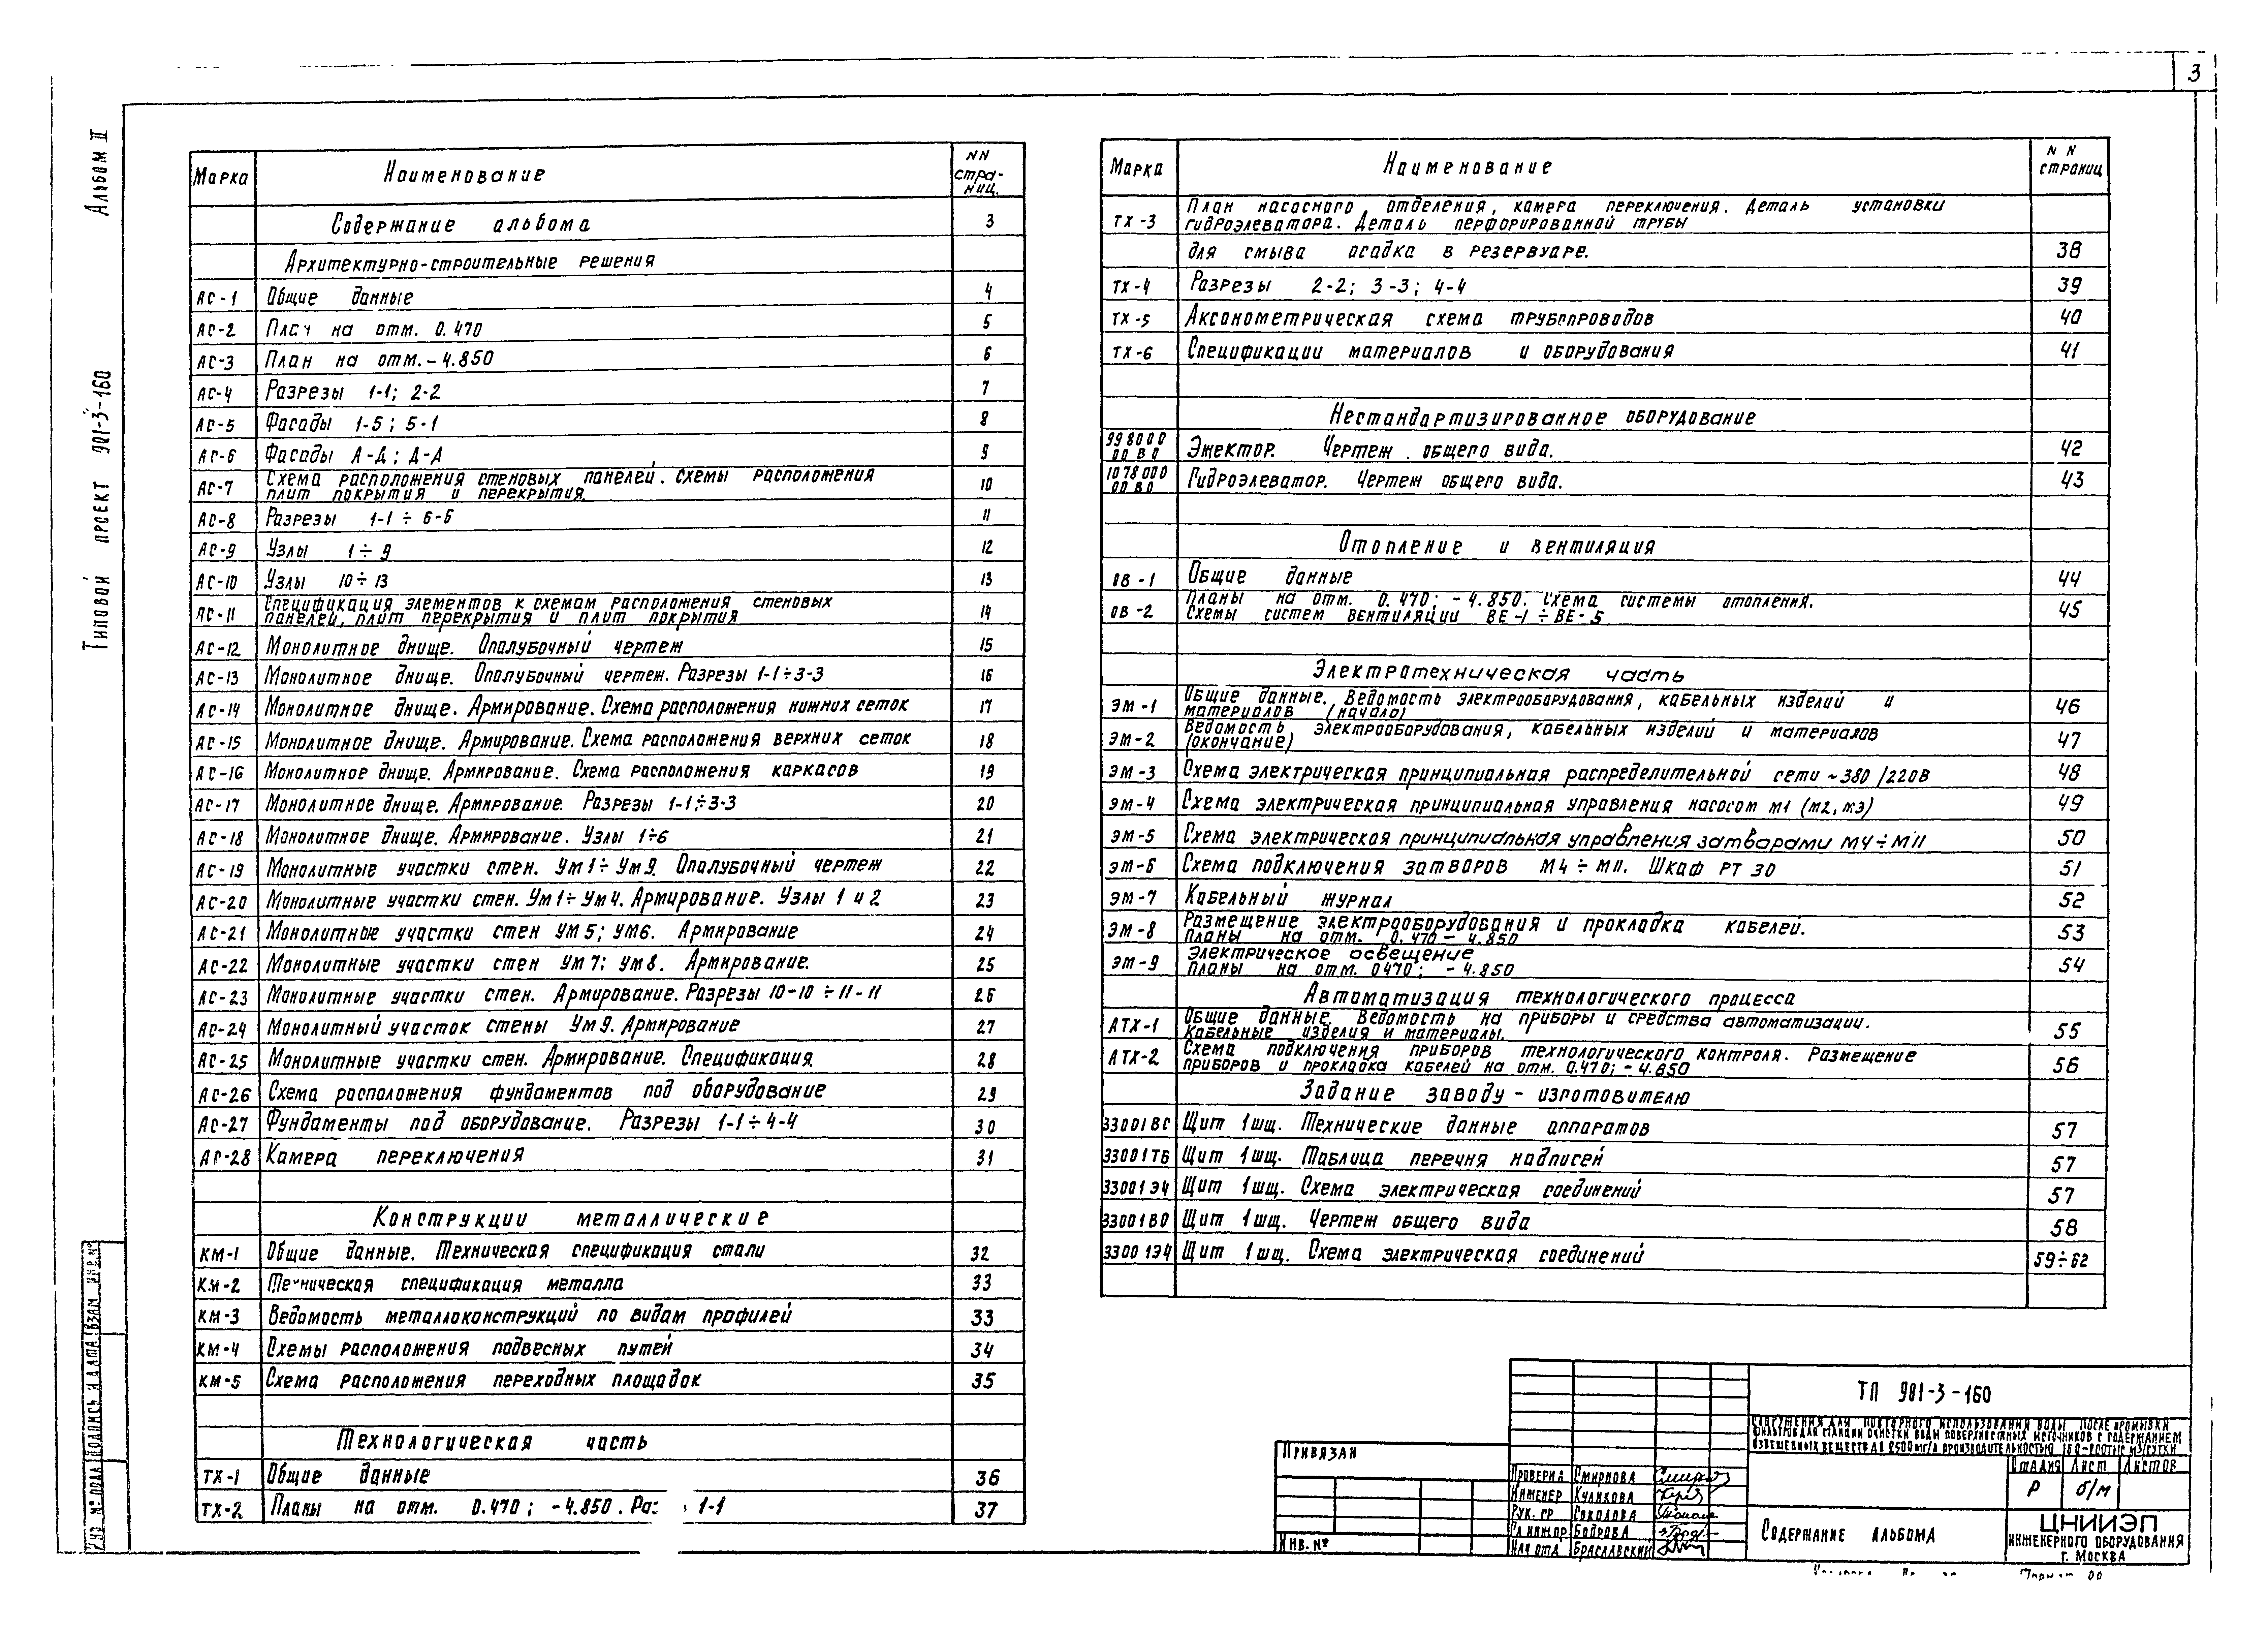 3
Альбом II
Типовой проект 901-3-160
Марка Наименование NN стра-ниц.
Содержание альбома 3
Архитектурно-строительные решения
АС-1 Общие данные 4
АС-2 План на отм. 0.470 5
АС-3 План на отм. -4.850 6
АС-4 Разрезы 1-1; 2-2 7
АС-5 Фасады 1-5; 5-1 8
АС-6 Фасады А-Д; Д-А 9
АС-7 Схема расположения стеновых панелей. Схемы расположения
плит покрытия и перекрытия. 10
АС-8 Разрезы 1-1 ÷ 6-6 11
АС-9 Узлы 1÷9 12
АС-10 Узлы 10÷13 13
АС-11 Спецификация элементов к схемам расположения стеновых
панелей, плит перекрытия и плит покрытия 14
АС-12 Монолитное днище. Опалубочный чертеж 15
АС-13 Монолитное днище. Опалубочный чертеж. Разрезы 1-1÷3-3 16
АС-14 Монолитное днище. Армирование. Схема расположения нижних сеток 17
АС-15 Монолитное днище. Армирование. Схема расположения верхних сеток 18
АС-16 Монолитное днище. Армирование. Схема расположения каркасов 19
АС-17 Монолитное днище. Армирование. Разрезы 1-1÷3-3 20
АС-18 Монолитное днище. Армирование. Узлы 1÷6 21
АС-19 Монолитные участки стен. Ум1÷Ум9. Опалубочный чертеж 22
АС-20 Монолитные участки стен. Ум1÷Ум4. Армирование. Узлы 1 и 2 23
АС-21 Монолитные участки стен Ум5; Ум6. Армирование 24
АС-22 Монолитные участки стен Ум7; Ум8. Армирование. 25
АС-23 Монолитные участки стен. Армирование. Разрезы 10-10 ÷ 11-11 26
АС-24 Монолитный участок стены Ум9. Армирование 27
АС-25 Монолитные участки стен. Армирование. Спецификация. 28
АС-26 Схема расположения фундаментов под оборудование 29
АС-27 Фундаменты под оборудование. Разрезы 1-1÷4-4 30
АС-28 Камера переключения 31
Конструкции металлические
КМ-1 Общие данные. Техническая спецификация стали 32
КМ-2 Техническая спецификация металла 33
КМ-3 Ведомость металлоконструкций по видам профилей 33
КМ-4 Схемы расположения подвесных путей 34
КМ-5 Схема расположения переходных площадок 35
Технологическая часть
ТХ-1 Общие данные 36
ТХ-2 Планы на отм. 0.470; -4.850. Раз 1-1 37
Марка Наименование N N страниц
ТХ-3 План насосного отделения, камера переключения. Деталь установки
гидроэлеватора. Деталь перфорированной трубы
для смыва осадка в резервуаре. 38
ТХ-4 Разрезы 2-2; 3-3; 4-4 39
ТХ-5 Аксонометрическая схема трубопроводов 40
ТХ-6 Спецификации материалов и оборудования 41
Нестандартизированное оборудование
998000 00 ВО Эжектор. Чертеж общего вида. 42
1078000 00 ВО Гидроэлеватор. Чертеж общего вида. 43
Отопление и вентиляция
ОВ-1 Общие данные 44
ОВ-2 Планы на отм. 0.470; -4.850. Схема системы отопления.
Схемы систем вентиляции ВЕ-1÷ВЕ-5 45
Электротехническая часть
ЭМ-1 Общие данные. Ведомость электрооборудования, кабельных изделий и
материалов (начало) 46
ЭМ-2 Ведомость электрооборудования, кабельных изделий и материалов
(окончание) 47
ЭМ-3 Схема электрическая принципиальная распределительной сети ~380/220В 48
ЭМ-4 Схема электрическая принципиальная управления насосом М1 (М2, М3) 49
ЭМ-5 Схема электрическая принципиальная управления затворами М4÷М11 50
ЭМ-6 Схема подключения затворов М4÷М11. Шкаф РТ 30 51
ЭМ-7 Кабельный журнал 52
ЭМ-8 Размещение электрооборудования и прокладка кабелей.
Планы на отм. 0.470 -4.850 53
ЭМ-9 Электрическое освещение
Планы на отм. 0470; -4.850 54
Автоматизация технологического процесса
АТХ-1 Общие данные. Ведомость на приборы и средства автоматизации.
Кабельные изделия и материалы. 55
АТХ-2 Схема подключения приборов технологического контроля. Размещение
приборов и прокладка кабелей на отм. 0.470; -4.850 56
Задание заводу-изготовителю
33001ВС Щит 1щщ. Технические данные аппаратов 57
33001ТБ Щит 1щщ. Таблица перечня надписей 57
33001Э4 Щит 1щщ. Схема электрическая соединений 57
33001ВО Щит 1щщ. Чертеж общего вида 58
33001Э4 Щит 1щщ. Схема электрическая соединений 59÷62
Инв. № подл. Подпись и дата Взам. инв. №
Привязан
Инв. №
ТП 901-3-160
Сооружения для повторного использования воды после промывки
фильтров для станции очистки воды поверхностных источников с содержанием
взвешенных веществ до 2500мг/л производительностью 160-200тыс м3/сутки
Стадия Лист Листов
Р б/м
Проверил Смирнова
Инженер Куликова
Рук. гр Соколова
Гл инж.пр. Бодрова
Нач отд Браславский
Содержание альбома
ЦНИИЭП
инженерного оборудования
г. Москва